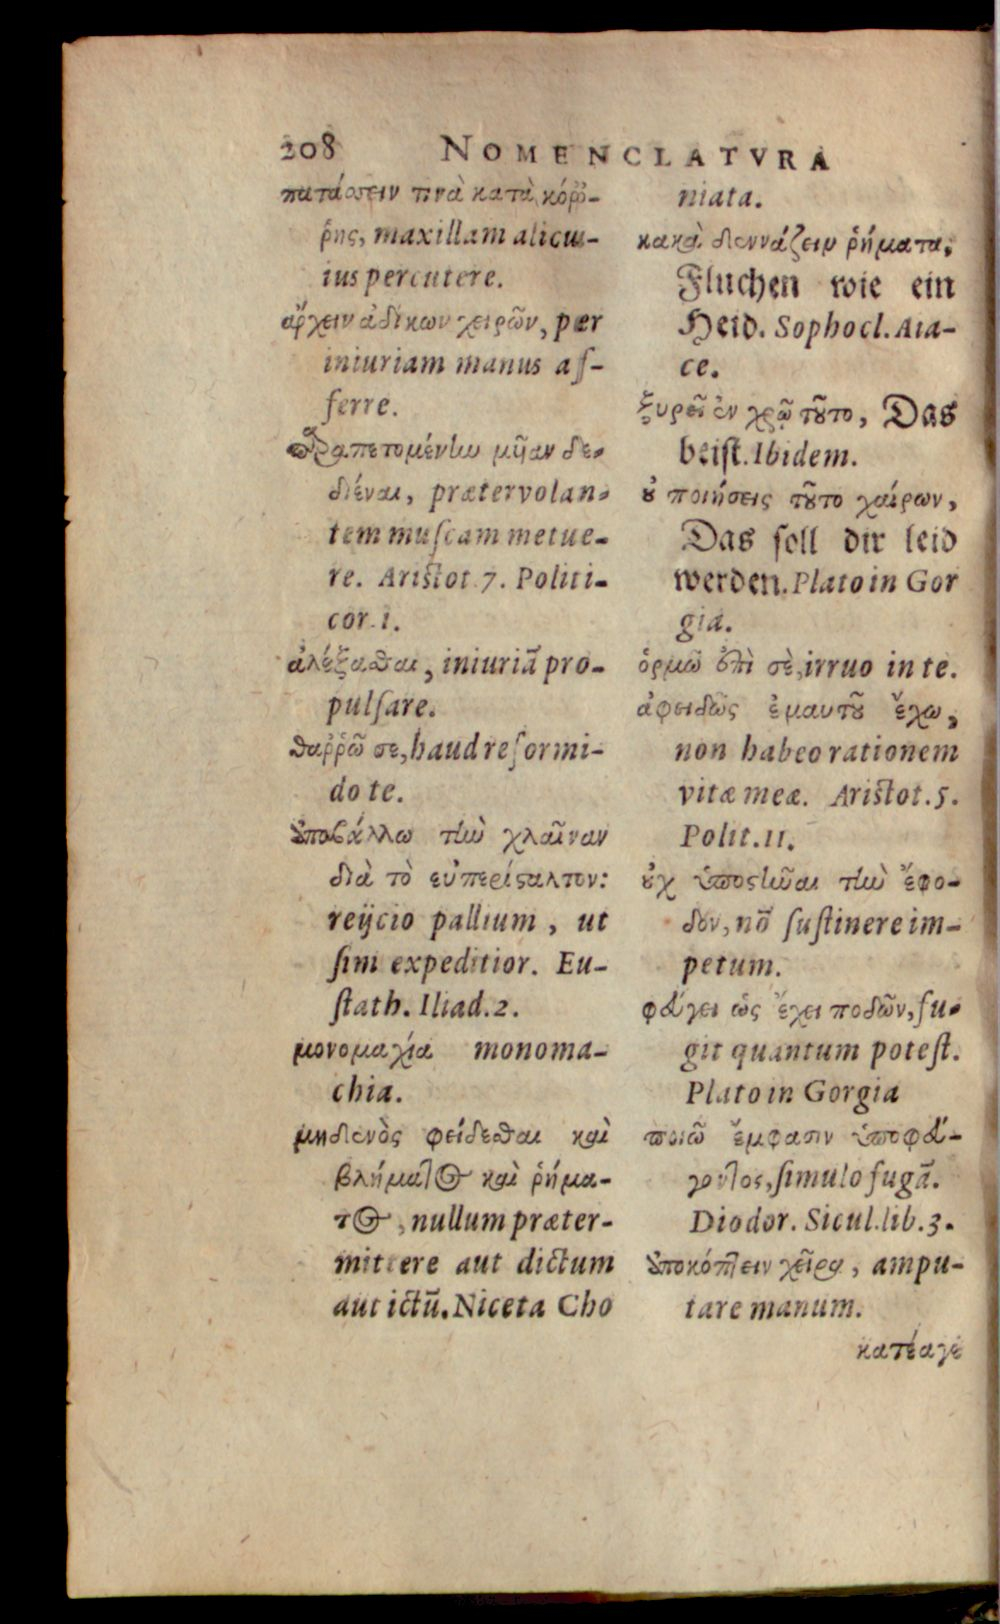 208 NOMENCLATVRA
πατάσσειν τινὰ κατὰ κόῤ-
ῥης, maxillam alicu-
ius percutere.
ἄρχειν ἀδίκων χειρῶν, per
iniuriam manus af-
ferre.
παραπετομένην μῦαν δε-
διέναι, prætervolan-
tem muſcam metue-
re. Ariſtot.7. Politi-
cor.1.
ἀλέξασθαι, iniuriā pro-
pulſare.
θαῤῥῶ σε, haud reformi-
do te.
ὑποβάλλω τὴν χλαῖναν
διὰ τὸ εὐπερίσταλτον:
reijcio pallium, ut
ſim expeditior. Eu-
ſtath. Iliad.2.
μονομαχία monoma-
chia.
μηδενὸς φείδεσθαι καὶ
βλήματος καὶ ῥήμα-
τος, nullum præter-
mittere aut dictum
aut ictū. Niceta Cho
niata.
κακὰ δεννάζειν ῥήματα,
Fluchen wie ein
Heid. Sophocl. Aia-
ce.
ξυρεῖ ἐν χρῷ τοῦτο, Das
beiſt. Ibidem.
οὐ ποιήσεις τοῦτο χαίρων,
Das ſoll dir leid
werden. Plato in Gor
gia.
ὁρμῶ ἐπὶ σὲ, irruo in te.
ἀφειδῶς ἐμαυτοῦ ἔχω,
non habeo rationem
vitæ meæ. Ariſtot.5.
Polit.11.
οὐχ ὑποστῆναι τὴν ἔφο-
δον, nō ſuſtinere im-
petum.
φεύγει ὡς ἔχει ποδῶν, fu-
git quantum poteſt.
Plato in Gorgia
ποιῶ ἔμφασιν ὑποφεύ-
γοντος, ſimulo fugā.
Diodor. Sicul.lib.3.
ὑποκόπτειν χεῖρα, ampu-
tare manum.
κατέαγε